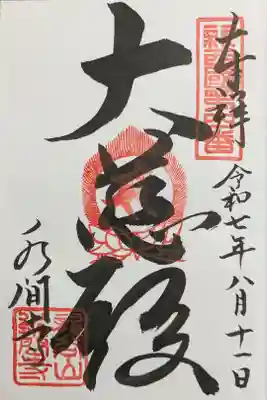 奉拝
令和七年八月十一日
大慈殿
水間寺